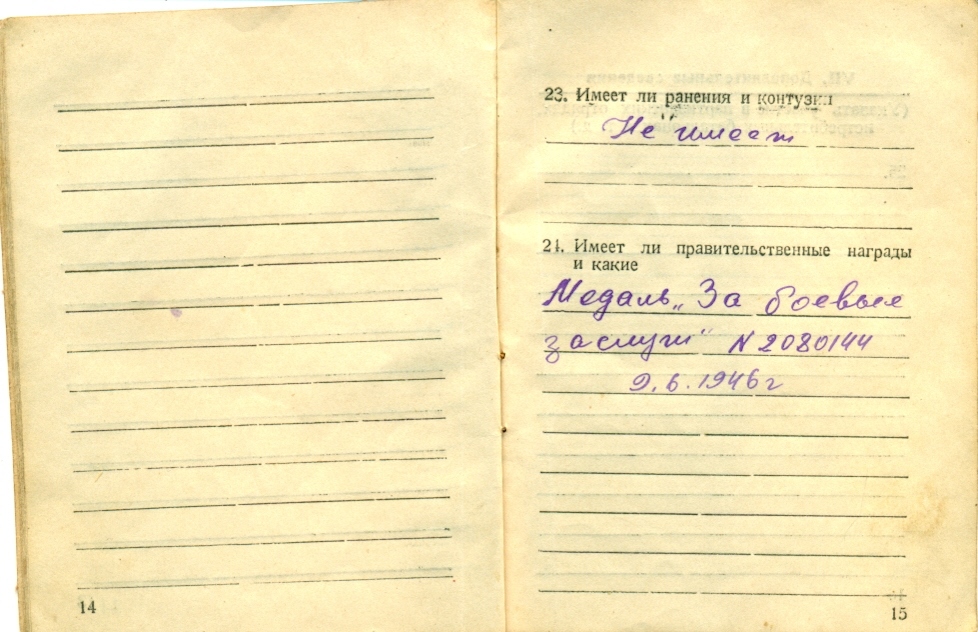 14
23. Имеет ли ранения и контузии
Не имеет
24. Имеет ли правительственные награды
и какие
Медаль „За боевые
заслуги" N 2080144
9.6.1946 г
15